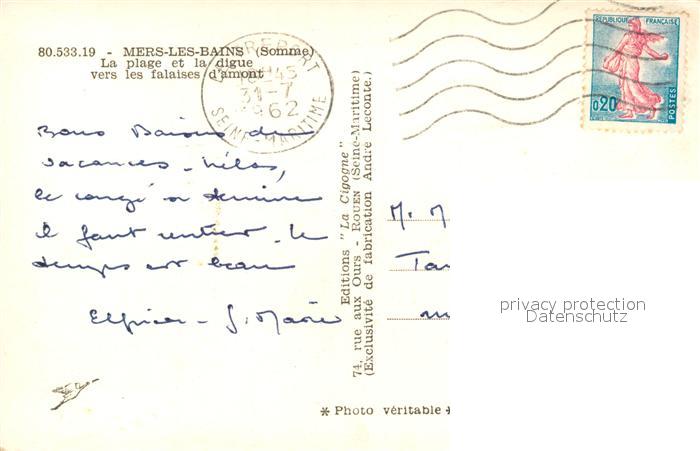 80.533.19 - MERS-LES-BAINS (Somme)
La plage et la digue
vers les falaises d'amont
18H45
31-7
1962
SEINE-MARITIME
REPUBLIQUE FRANÇAISE
0,20
POSTES
Bons Baisers de
vacances - hélas,
le congé se termine
il faut rentrer - le
temps est beau
Editions "La Cigogne"
74, rue aux Ours - ROUEN (Seine-Maritime)
(Exclusivité de fabrication André Leconte.)
M. M
privacy protection
Datenschutz
* Photo véritable *